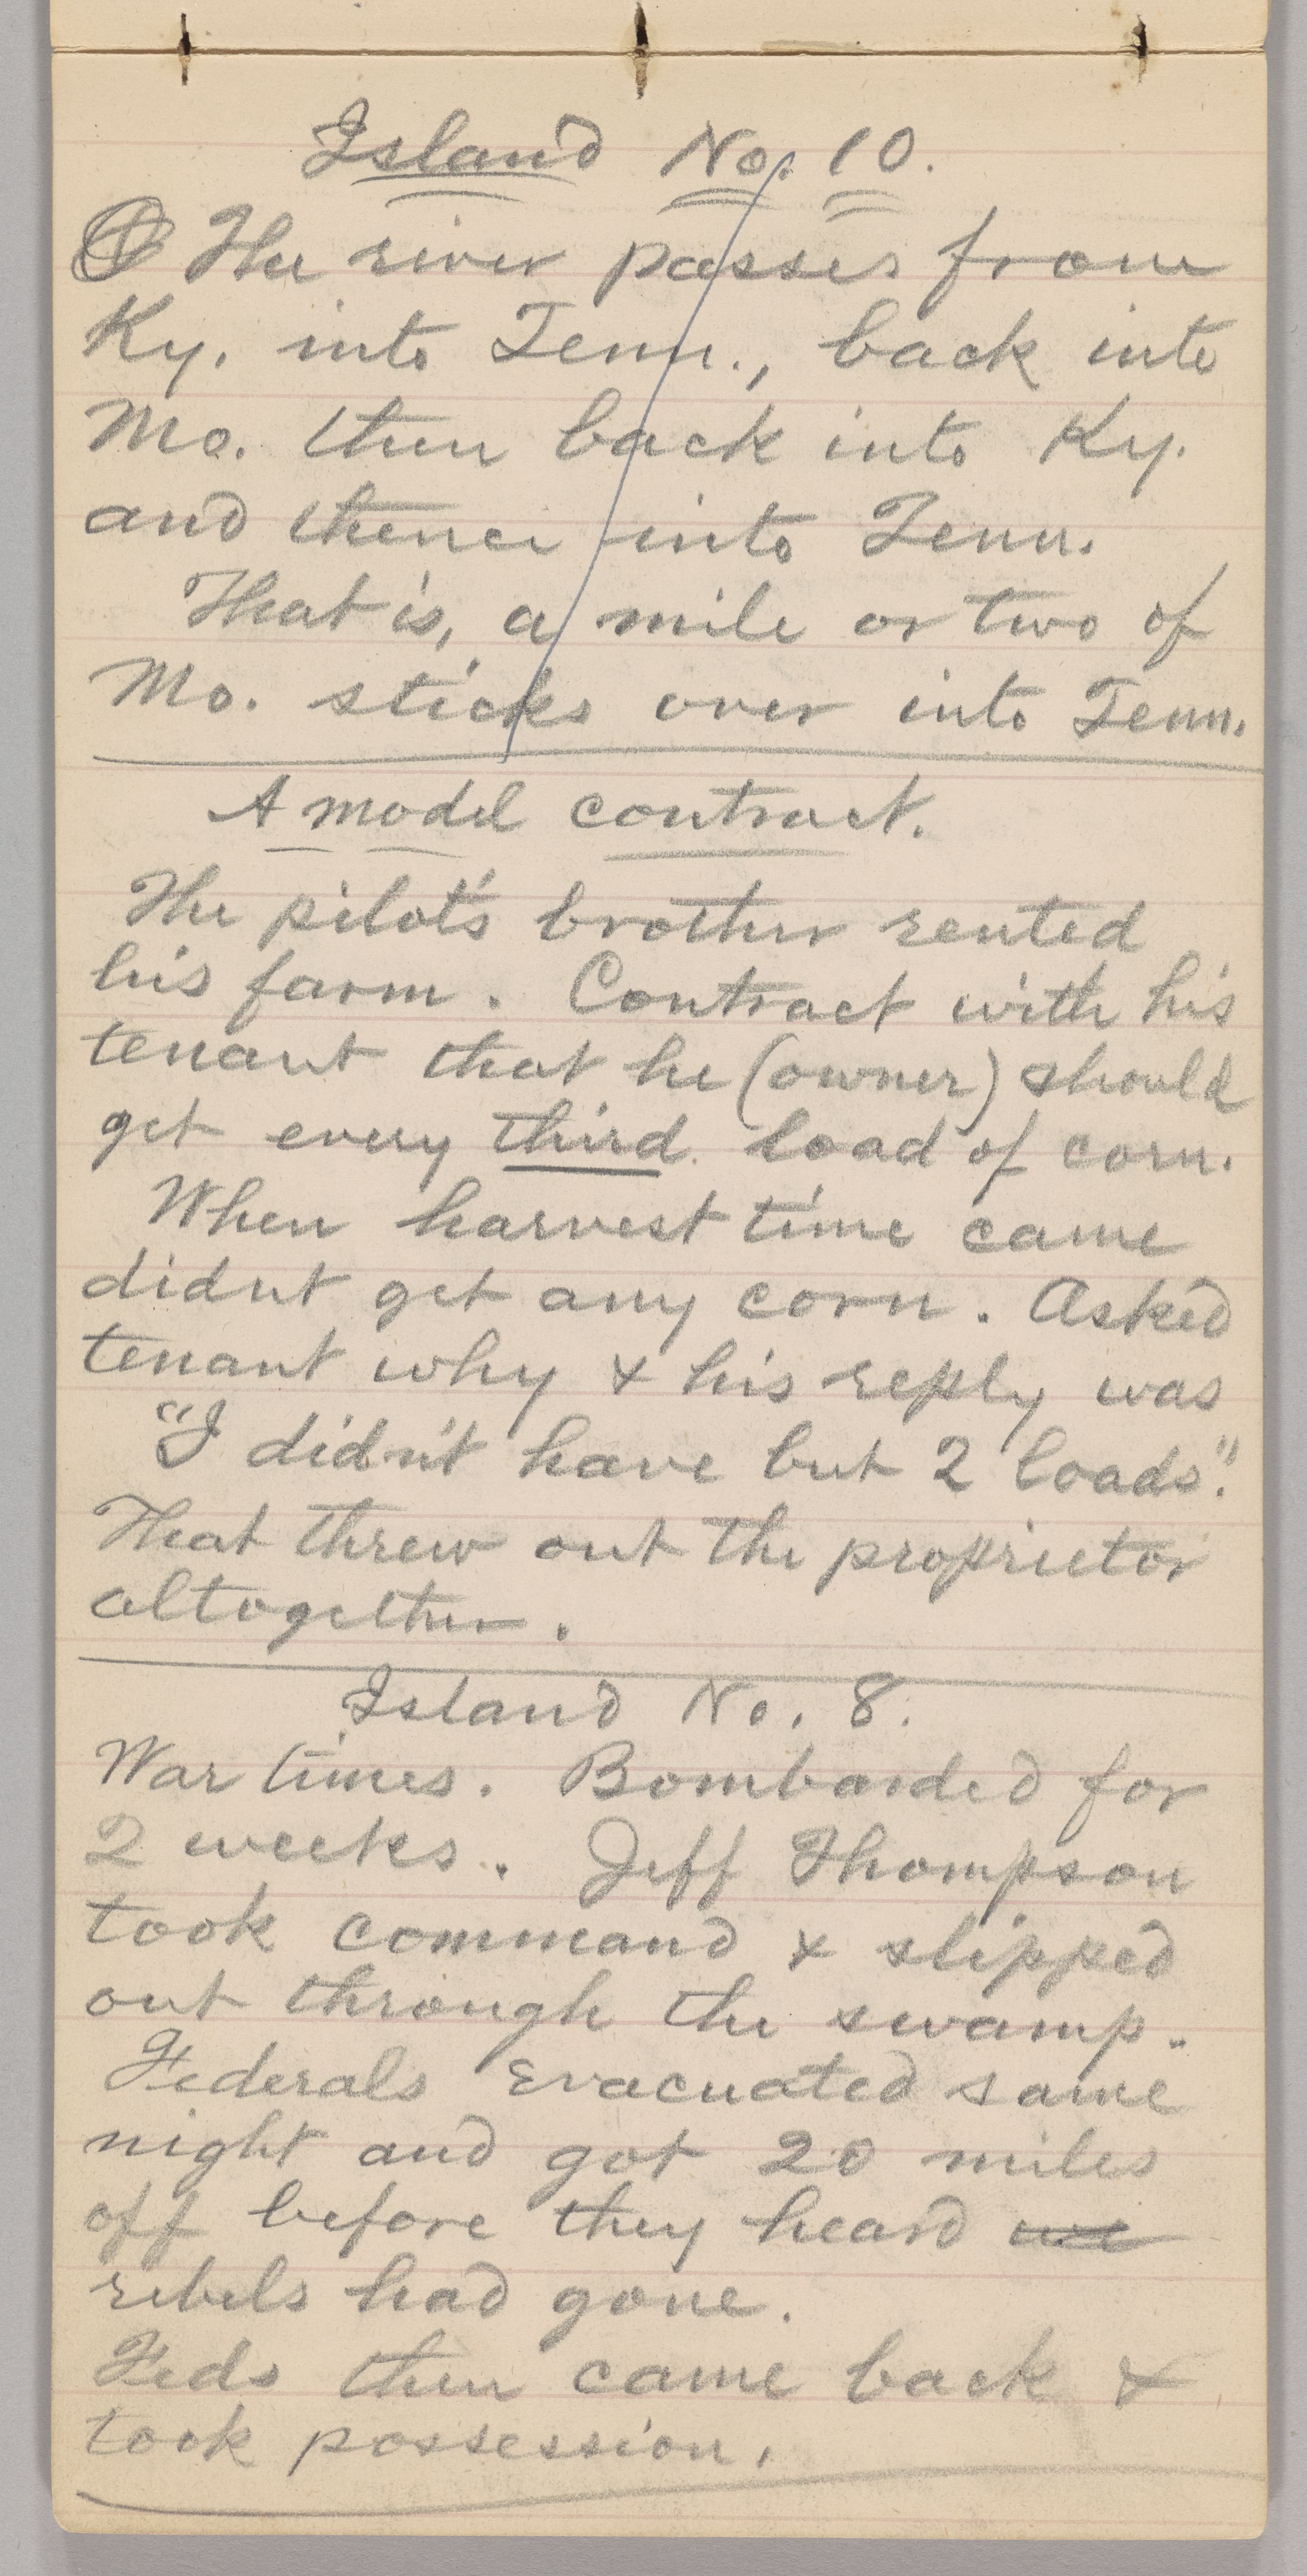 Island No. 10.
The river passes from
Ky. into Tenn., back into
Mo. then back into Ky.
and thence into Tenn.
That is, a mile or two of
Mo. sticks over into Tenn.
A model contract.
The pilot's brother rented
his farm. Contract with his
tenant that he (owner) should
get every third load of corn.
When harvest time came
didnt get any corn. Asked
tenant why & his reply was
"I didn't have but 2 loads."
That threw out the proprietor
altogether.
Island No. 8.
War times. Bombarded for
2 weeks. Jeff Thompson
took command & slipped
out through the swamp.
Federals evacuated same
night and got 20 miles
off before they heard we
rebels had gone.
Feds then came back &
took possession.